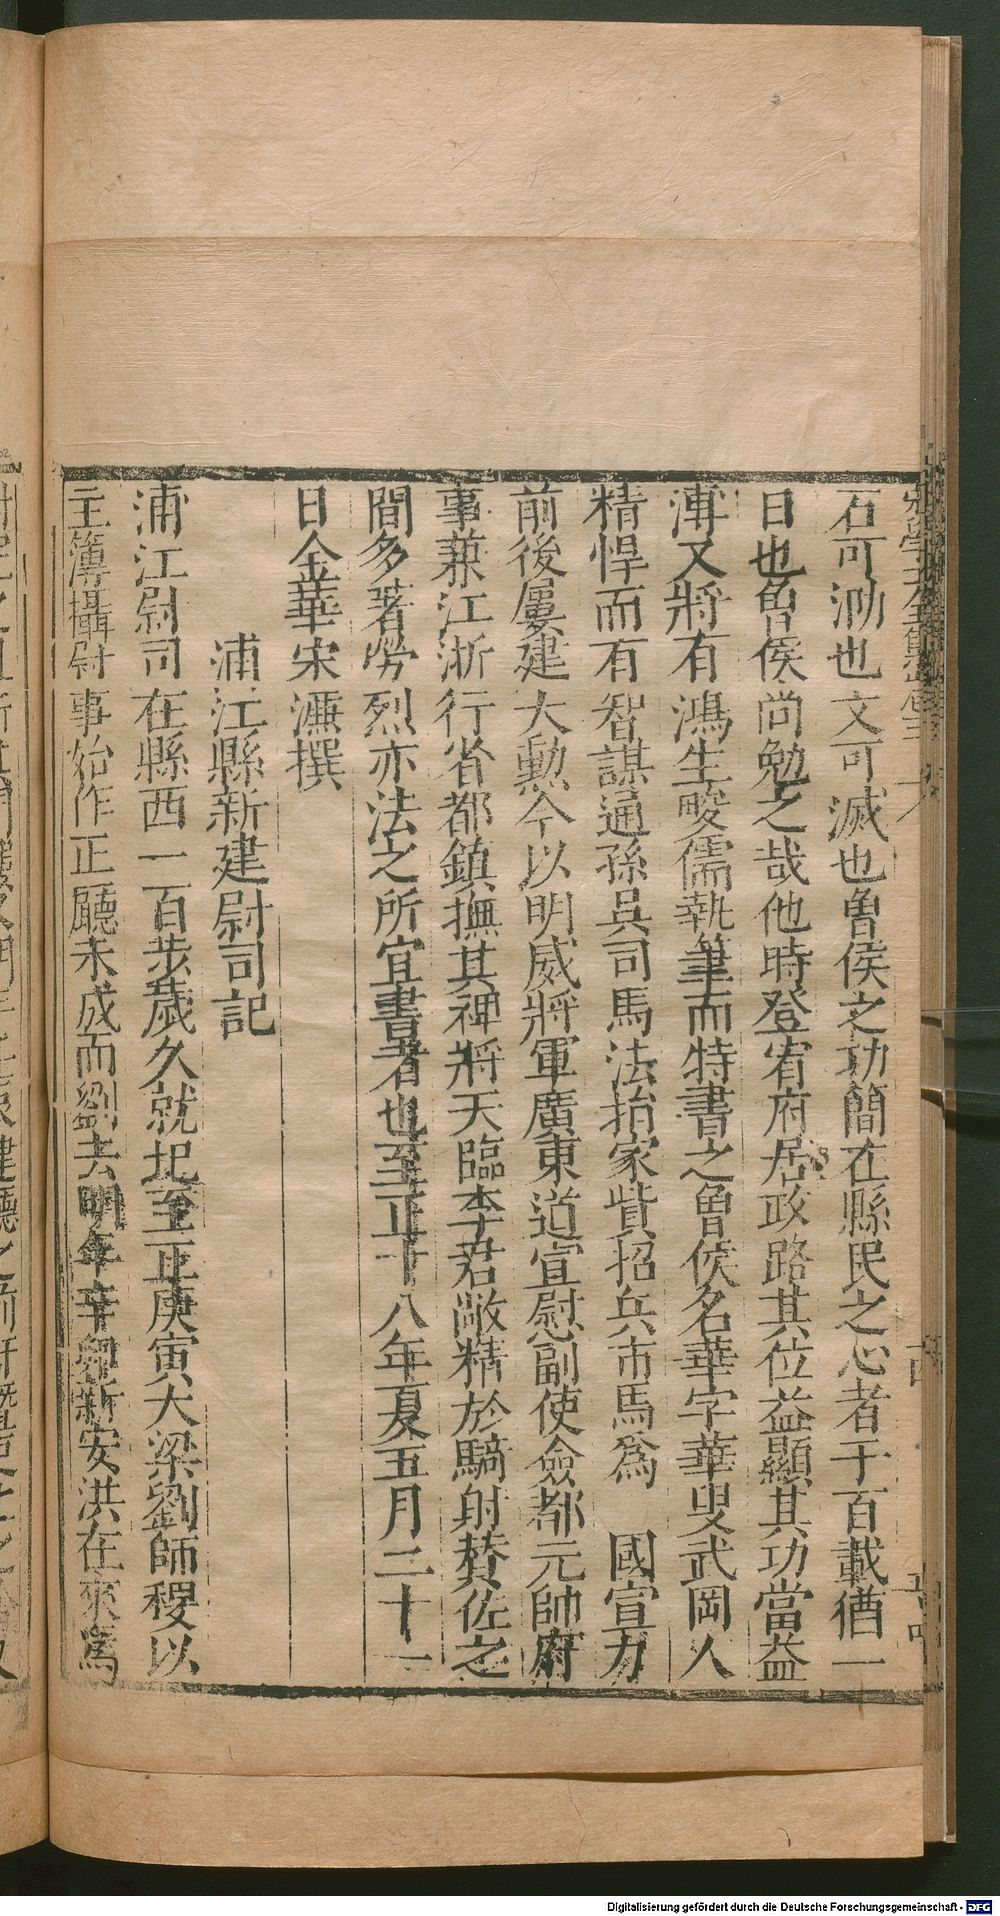 石可泐也文可滅也魯侯之功簡在縣民之心者千百載猶一
日也魯侯尚勉之哉他時登宥府居政路其位益顯其功當益
溥又將有鴻生畯儒執筆而特書之魯侯名華字華叟武岡人
精悍而有智謀通孫吳司馬法捐家貲招兵市馬為 國宣力
前後屢建大勳今以明威將軍廣東道宣慰副使僉都元帥府
事兼江浙行省都鎮撫其裨將天臨李君敞精於騎射贊佐之
間多著勞烈亦法之所宜書者也至正十八年夏五月二十一
日金華宋濂撰
浦江縣新建尉司記
浦江尉司在縣西一百步歲久就圯至正庚寅大梁劉師稷以
主簿攝尉事始作正廳未成而劉去明年辛卯新安洪在來為
Digitalisierung gefördert durch die Deutsche Forschungsgemeinschaft - DFG